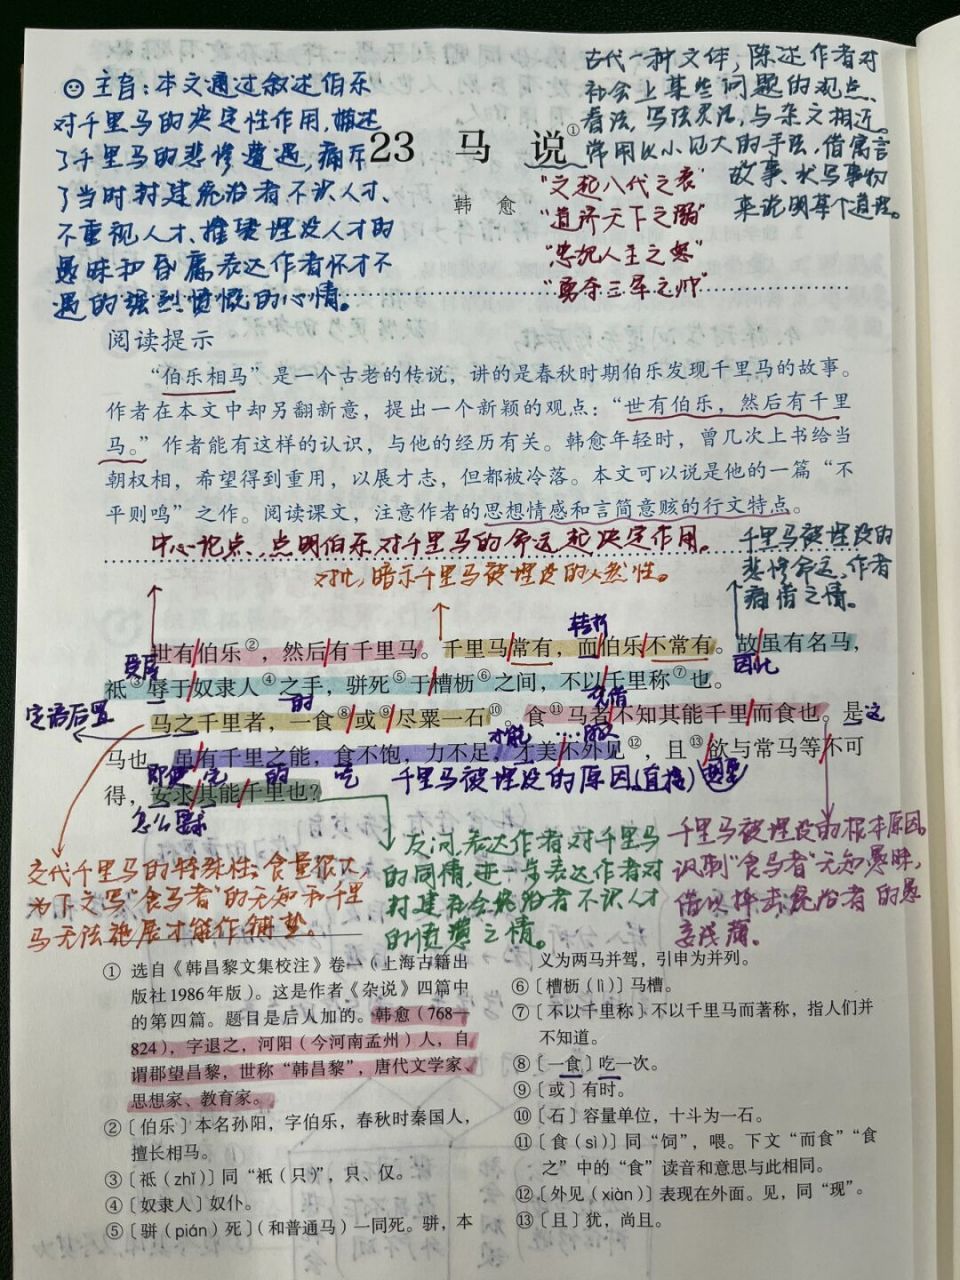 主旨：本文通过叙述伯乐
对千里马的决定性作用，描述
了千里马的悲惨遭遇，痛斥
了当时封建统治者不识人才、
不重视人才、摧残埋没人才的
愚昧和昏庸，表达作者怀才不
遇的强烈愤慨的心情。
古代一种文体，陈述作者对
社会上某些问题的观点、
看法，写法灵活，与杂文相近。
常用以小见大的手法，借寓言
故事、状写事物
来说明某个道理。
23 马 说①
韩 愈
“文起八代之衰”
“道济天下之溺”
“忠犯人主之怒”
“勇夺三军之帅”
阅读提示
“伯乐相马”是一个古老的传说，讲的是春秋时期伯乐发现千里马的故事。
作者在本文中却另翻新意，提出一个新颖的观点：“世有伯乐，然后有千里
马。”作者能有这样的认识，与他的经历有关。韩愈年轻时，曾几次上书给当
朝权相，希望得到重用，以展才志，但都被冷落。本文可以说是他的一篇“不
平则鸣”之作。阅读课文，注意作者的思想情感和言简意赅的行文特点。
中心论点、点明伯乐对千里马的命运起决定作用。
对比，暗示千里马被埋没的必然性。
千里马被埋没的
悲惨命运，作者
痛惜之情。
转折
世有/伯乐②，然后/有千里马。千里马/常有，而/伯乐/不常有。故虽有名马，
受辱
因此
祗③/辱于/奴隶人④之手，骈死⑤于/槽枥⑥之间，不以/千里称⑦也。
定语后置
的
马之千里者，一食⑧/或⑨/尽粟一石⑩。食⑪马者/不知其能千里/而食也。是
这
才能
马也，虽/有千里之能，食不饱，力不足，才美/不外见⑫，且⑬/欲与常马等/不可
即使
的
吃
千里马被埋没的原因（直接）
得，安求/其能/千里也？
怎么要求
交代千里马的特殊性：食量很大，
为下文写“食马者”的无知和千里
马无法施展才能作铺垫。
反问，表达作者对千里马
的同情，进一步表达作者对
封建社会统治者不识人才
的愤懑之情。
千里马被埋没的根本原因，
讽刺“食马者”无知愚昧，
借以抨击统治者的愚
妄浅薄。
① 选自《韩昌黎文集校注》卷一（上海古籍出
版社1986年版）。这是作者《杂说》四篇中
的第四篇。题目是后人加的。韩愈（768—
824），字退之，河阳（今河南孟州）人，自
谓郡望昌黎，世称“韩昌黎”，唐代文学家、
思想家、教育家。
②〔伯乐〕本名孙阳，字伯乐，春秋时秦国人，
擅长相马。
③〔祗（zhǐ）〕同“衹（只）”，只、仅。
④〔奴隶人〕奴仆。
⑤〔骈（pián）死〕（和普通马）一同死。骈，本
义为两马并驾，引申为并列。
⑥〔槽枥（lì）〕马槽。
⑦〔不以千里称〕不以千里马而著称，指人们并
不知道。
⑧〔一食〕吃一次。
⑨〔或〕有时。
⑩〔石〕容量单位，十斗为一石。
⑪〔食（sì）〕同“饲”，喂。下文“而食”“食
之”中的“食”读音和意思与此相同。
⑫〔外见（xiàn）〕表现在外面。见，同“现”。
⑬〔且〕犹，尚且。